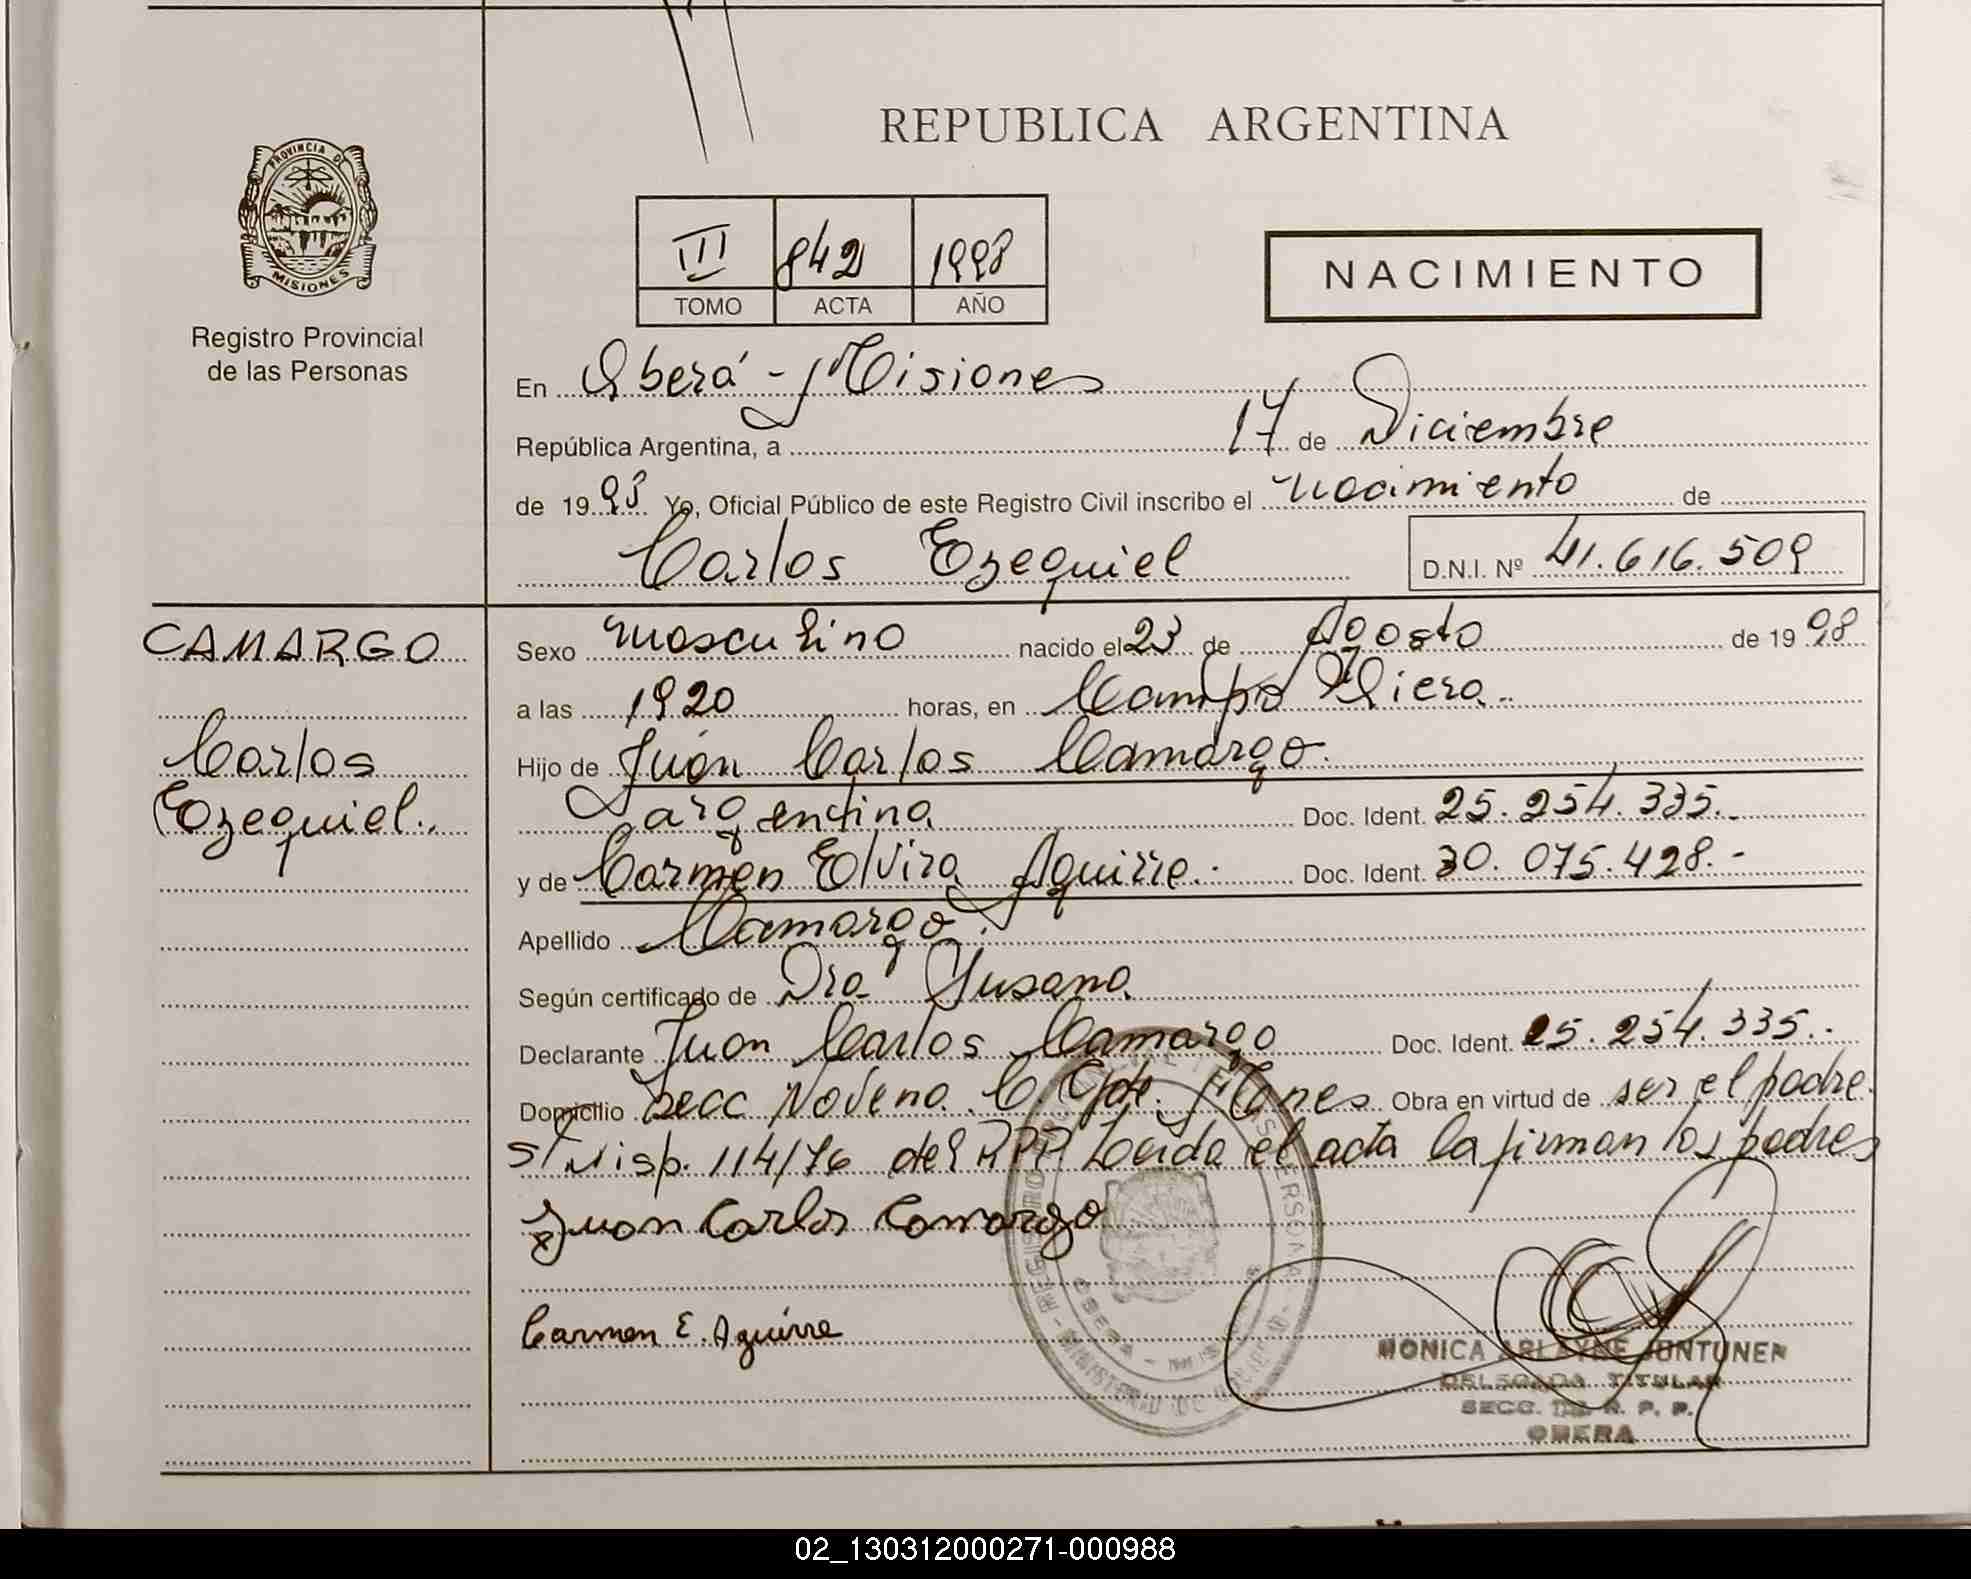 REPUBLICA ARGENTINA
PROVINCIA DE
MISIONES
Registro Provincial
de las Personas
III 842 1998
TOMO ACTA AÑO
NACIMIENTO
En Oberá - Misiones
República Argentina, a 17 de Diciembre
de 1998 Yo, Oficial Público de este Registro Civil inscribo el nacimiento de
Carlos Ezequiel D.N.I. Nº 41.616.509
CAMARGO
Carlos
Ezequiel.
Sexo masculino nacido el 23 de Agosto de 1998
a las 1920 horas, en Campo Viera.
Hijo de Juan Carlos Camargo.
argentina Doc. Ident. 25.254.335.-
y de Carmen Elvira Aguirre.- Doc. Ident. 30.075.428.-
Apellido Camargo.
Según certificado de Dra Susana
Declarante Juan Carlos Camargo Doc. Ident. 25.254.335.-
Domicilio Secc Novena. C. Gde. Mnes. Obra en virtud de ser el padre.
s/Disp. 114/76 del RPP Leída el acta la firman los padres
Juan Carlos Camargo
Carmen E. Aguirre
MONICA ARLAYNE JUNTUNEN
DELEGADA TITULAR
SECC. R. P. P.
OBERA
02_130312000271-000988